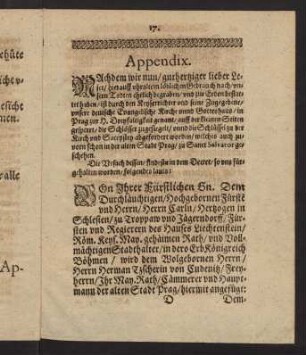 17.
Appendix.
NAchdem wir nun/ guthertziger lieber Le-
ser/ hierauff uhraltem löblichem Gebrauch nach/ un-
sern Todten ehrlich begraben/ und zur Erden bestat-
tet haben / ist durch den Keyserrichter und seine Zugegebene/
unsere deutsche Evangelische Kirche unnd Gotteshaus / in
Prag zur H. Dreyfaltigkeit genant/ auff der kleinen Seiten
gesperret/ die Schlösser zugesiegelt/ unnd die Schlüssel zu der
Kirch und Sacristey abgefordert worden/ welches auch zu-
vorn schon in der alten Stadt Prag/ zu Sanct Salvator ge-
schehen.
Die Ursach dessen findestu in dem Decret/ so uns für-
gehalten worden/ folgendes lauts:
VOn Ihrer Fürstlichen Gn. Dem
Durchläuchtigen/ Hochgebornen Fürsten
und Herrn/ Herrn Carln/ Hertzogen in
Schlesien/ zu Troppaw und Jägerndorff/ Für-
sten und Regierern des Hauses Liechtenstein/
Röm. Keys. May. gehäimen Rath/ und Voll-
mächtigen Stadthalter/ in dero Erb Königreich
Böhmen / wird dem Wolgebornen Herrn/
Herrn Herman Tzschernin von Cudenitz/ Frey-
herrn/ Ihr May. Rath/ Cämmerer und Haupt-
mann der alten Stadt Prag/ hiermit angefügt:
D Dem-